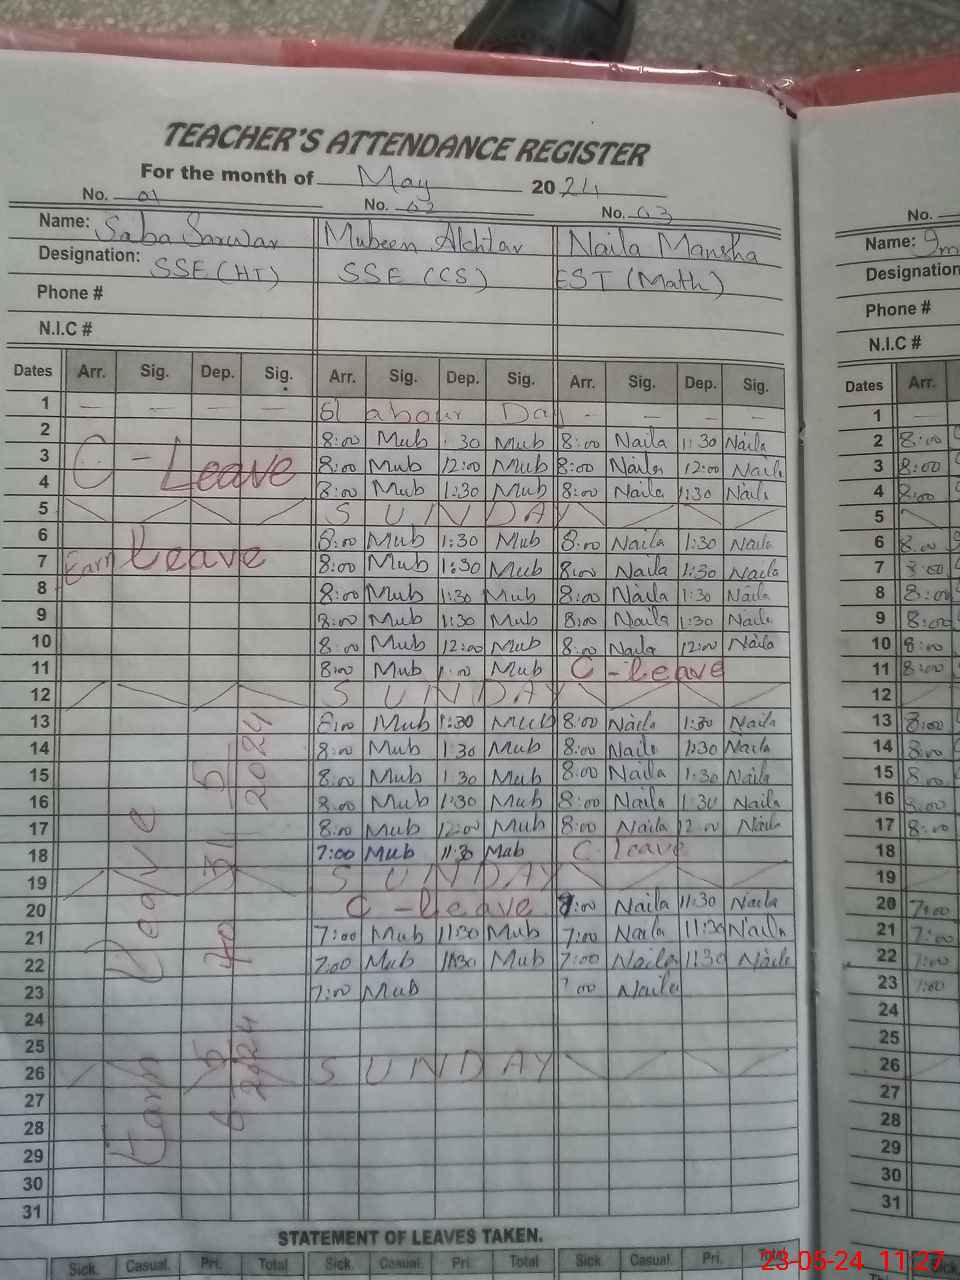 TEACHER'S ATTENDANCE REGISTER
For the month of May 2024
No. 01 No. 02 No. 03 No.
Name: Saba Sarwar Mubeen Akhtar Naila Mansha Name:
Designation: SSE (HT) SSE (CS) EST (Math) Designation
Phone # Phone #
N.I.C # N.I.C #
Dates Arr. Sig. Dep. Sig. Arr. Sig. Dep. Sig. Arr. Sig. Dep. Sig. Dates Arr.
1 — — — — Labour Day - - - - 1 —
2 8:00 Mub 1:30 Mub 8:00 Naila 1:30 Naila 2 8:00
3 C-Leave 8:00 Mub 12:00 Mub 8:00 Naila 12:00 Naila 3 8:00
4 8:00 Mub 1:30 Mub 8:00 Naila 1:30 Naila 4 8:00
5 SUNDAY 5
6 8:00 Mub 1:30 Mub 8:00 Naila 1:30 Naila 6 8:00
7 Earn Leave 8:00 Mub 1:30 Mub 8:00 Naila 1:30 Naila 7 8:00
8 8:00 Mub 1:30 Mub 8:00 Naila 1:30 Naila 8 8:00
9 8:00 Mub 1:30 Mub 8:00 Naila 1:30 Naila 9 8:00
10 8:00 Mub 12:00 Mub 8:00 Naila 12:00 Naila 10 8:00
11 8:00 Mub Mub C-leave 11 8:00
12 SUNDAY 12
13 8:00 Mub 1:30 Mub 8:00 Naila 1:30 Naila 13 8:00
14 8:00 Mub 1:30 Mub 8:00 Naila 1:30 Naila 14 8:00
15 8:00 Mub 1:30 Mub 8:00 Naila 1:30 Naila 15 8:00
16 8:00 Mub 1:30 Mub 8:00 Naila 1:30 Naila 16 8:00
17 8:00 Mub 12:00 Mub 8:00 Naila 12:00 Naila 17 8:00
18 7:00 Mub 11:30 Mub C-leave 18
19 SUNDAY 19
20 C-leave 7:00 Naila 11:30 Naila 20 7:00
21 7:00 Mub 11:30 Mub 7:00 Naila 11:30 Naila 21 7:00
22 7:00 Mub 11:30 Mub 7:00 Naila 11:30 Naila 22 7:00
23 7:00 Mub 7:00 Naila 23 7:00
24 24
25 25
26 SUNDAY 26
27 27
28 28
29 29
30 30
31 31
Earn Leave
6 5 2024 To 31 5 2024
STATEMENT OF LEAVES TAKEN.
Sick. Casual. Pri. Total Sick. Casual. Pri. Total Sick. Casual. Pri. Total
23-05-24 11:27